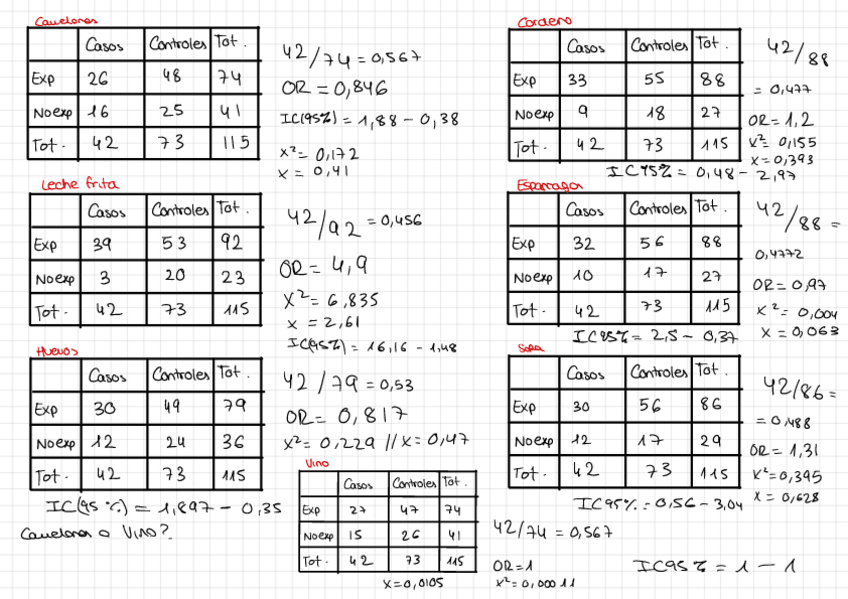 Canelones
Casos Controles Tot.
Exp 26 48 74
No exp 16 25 41
Tot. 42 73 115
42/74 = 0,567
OR = 0,846
IC(95%) = 1,88 - 0,38
x² = 0,172
x = 0,41
Cordero
Casos Controles Tot.
Exp 33 55 88
No exp 9 18 27
Tot. 42 73 115
42/88
= 0,477
OR = 1,2
x² = 0,155
x = 0,393
IC95% = 0,48 - 2,97
Leche frita
Casos Controles Tot.
Exp 39 53 92
No exp 3 20 23
Tot. 42 73 115
42/92 = 0,456
OR = 4,9
x² = 6,835
x = 2,61
IC(95%) = 16,16 - 1,48
Esparragos
Casos Controles Tot.
Exp 32 56 88
No exp 10 17 27
Tot. 42 73 115
42/88 =
0,4772
OR = 0,97
x² = 0,004
x = 0,063
IC95% = 2,5 - 0,37
Huevos
Casos Controles Tot.
Exp 30 49 79
No exp 12 24 36
Tot. 42 73 115
42/79 = 0,53
OR = 0,817
x² = 0,229 // x = 0,47
IC(95%) = 1,897 - 0,35
Canelones o Vino?
Sopa
Casos Controles Tot.
Exp 30 56 86
No exp 12 17 29
Tot. 42 73 115
42/86 =
= 0,488
OR = 1,31
x² = 0,395
x = 0,628
IC95% = 0,56 - 3,04
Vino
Casos Controles Tot.
Exp 27 47 74
No exp 15 26 41
Tot. 42 73 115
x = 0,0105
42/74 = 0,567
OR = 1
x² = 0,00011
IC95% = 1 - 1